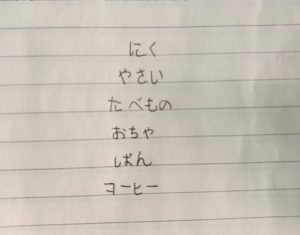 にく
やさい
たべもの
おちゃ
ぱん
コーヒー